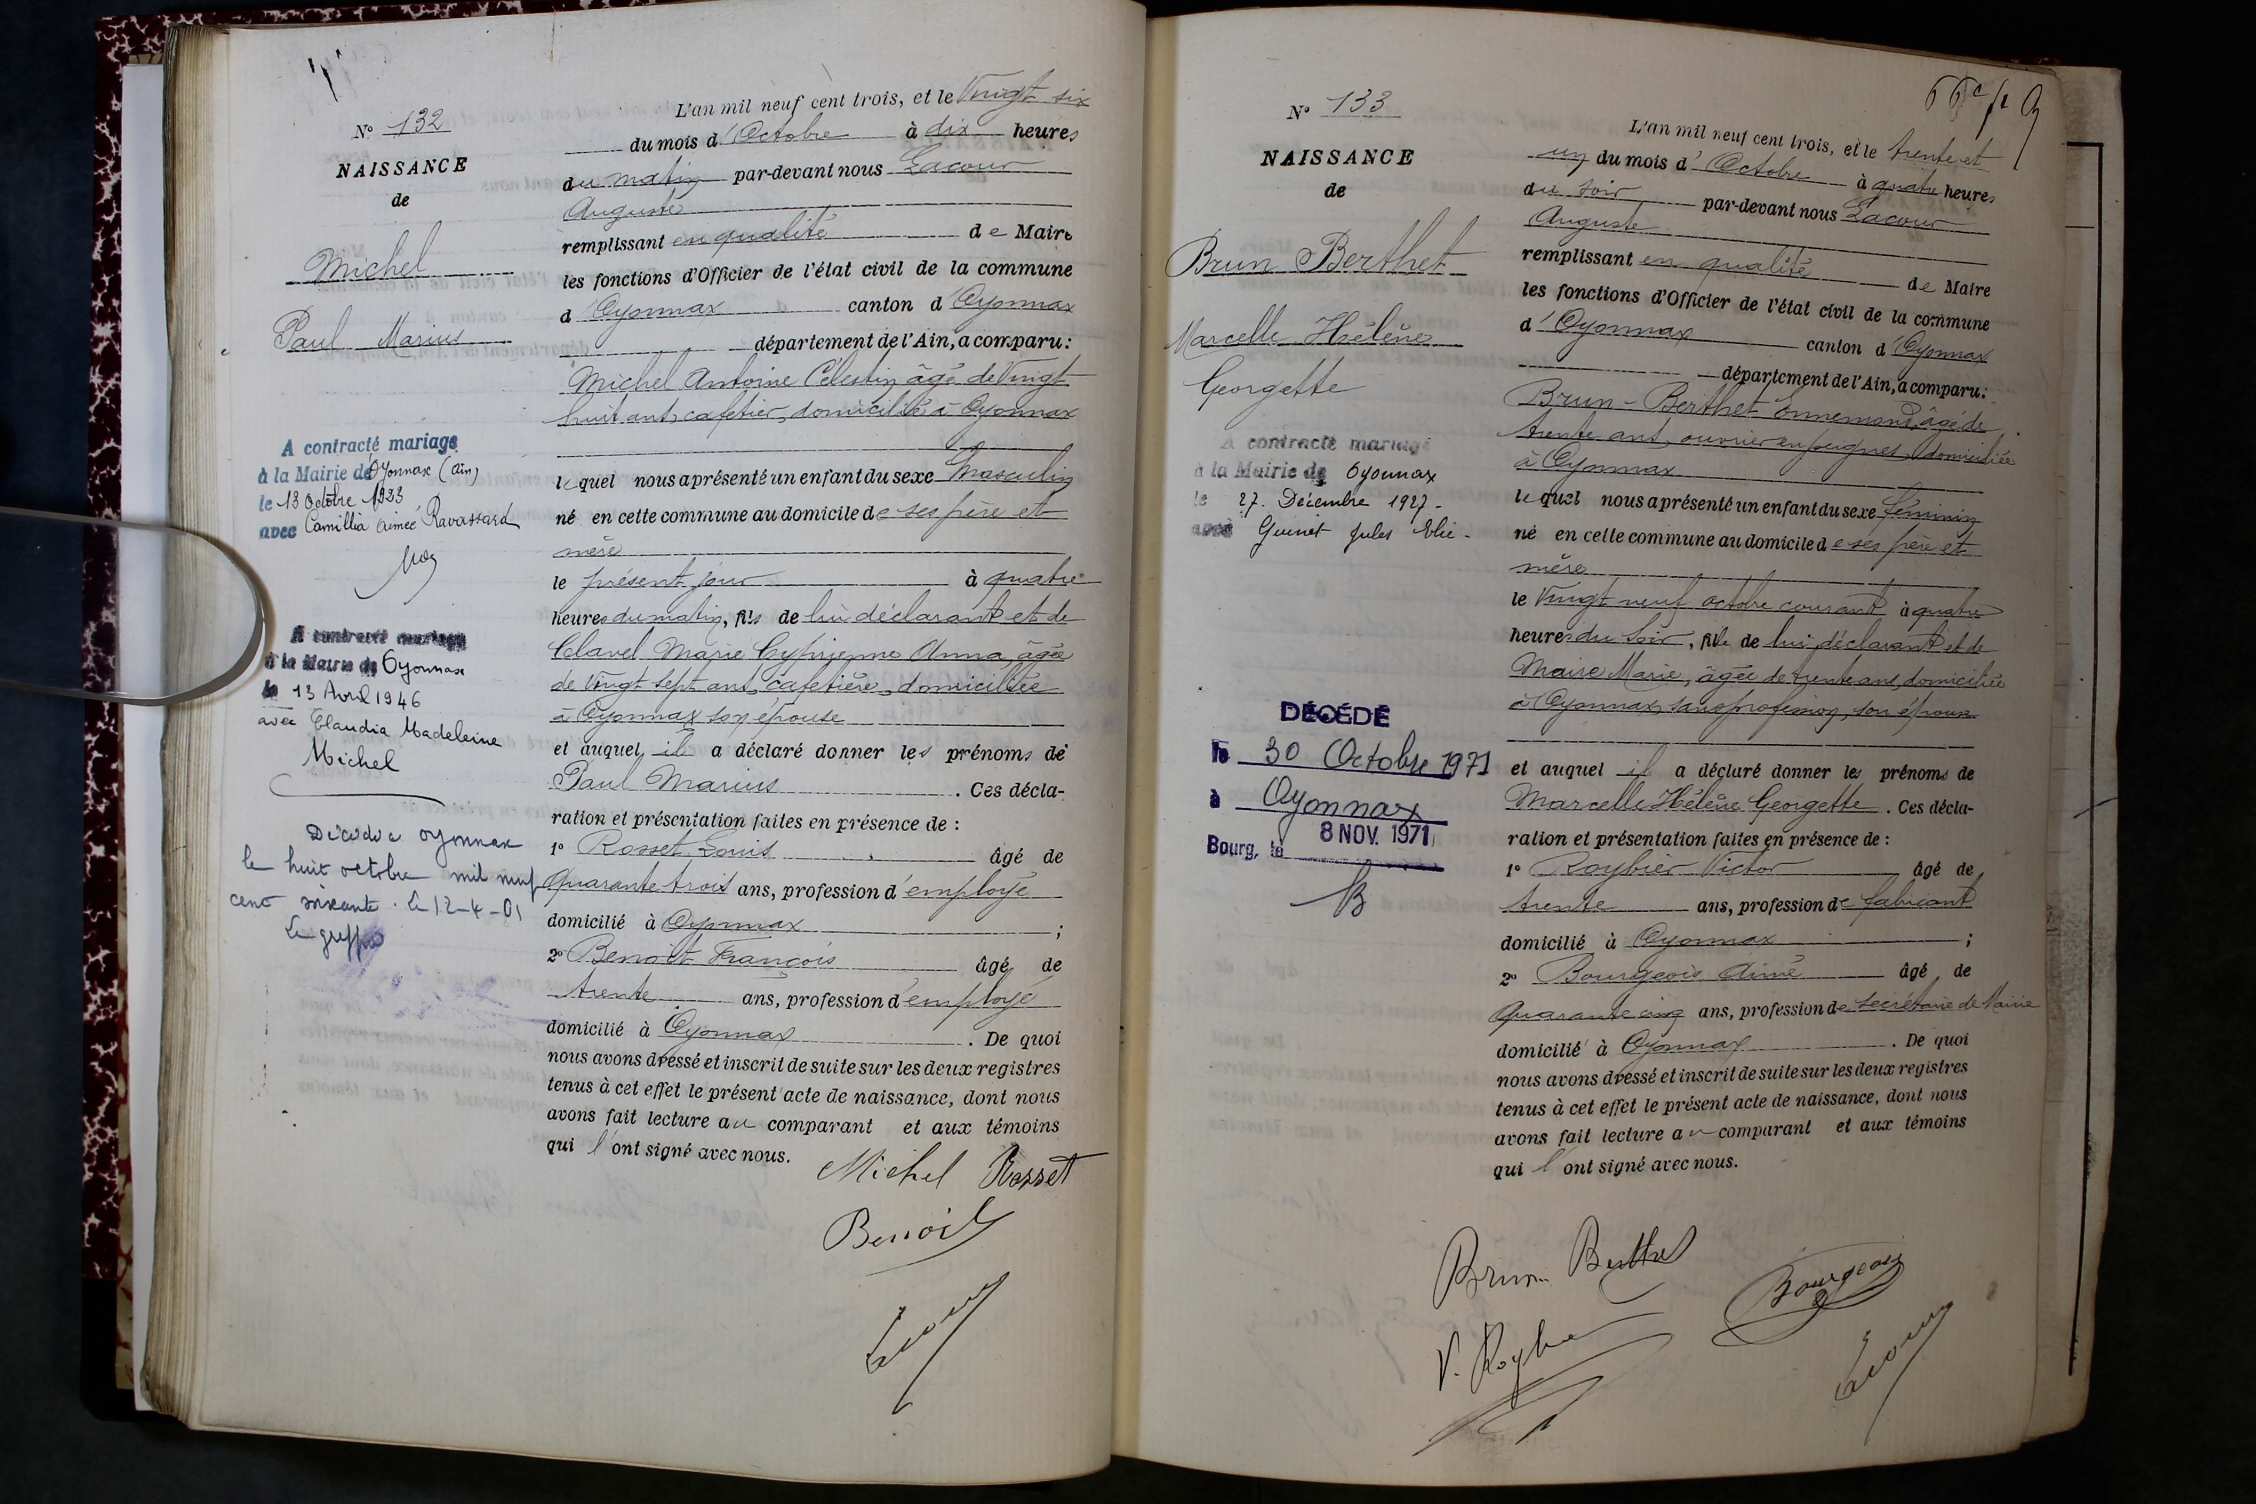 N° 132
NAISSANCE
de
Michel
Paul Marius
A contracté mariage
à la Mairie de Oyonnax (Ain)
le 13 Octobre 1933
avec Camillia Aimée Ravassard
A contracté mariage
à la Mairie de Oyonnax
le 13 Avril 1946
avec Claudia Madeleine
Michel
Décédé à Oyonnax
le huit octobre mil neuf
cent soixante. Le 12-4-
Le greffier
L'an mil neuf cent trois, et le Vingt six
du mois d'Octobre à dix heures
du matin par-devant nous Lacour
Auguste
remplissant en qualité de Maire
les fonctions d'Officier de l'état civil de la commune
d'Oyonnax canton d'Oyonnax
département de l'Ain, a comparu:
Michel Antoine Célestin âgé de Vingt
huit ans, cafetier, domicilié à Oyonnax
lequel nous a présenté un enfant du sexe Masculin
né en cette commune au domicile de ses père et
mère
le présent jour à quatre
heures du matin, fils de lui déclarant et de
Clavel Marie Cyprienne Anna, âgée
de Vingt sept ans, cafetière, domiciliée
à Oyonnax son épouse
et auquel il a déclaré donner les prénoms de
Paul Marius . Ces décla-
ration et présentation faites en présence de :
1° Rosset Louis âgé de
Quarante trois ans, profession d'employé
domicilié à Oyonnax ;
2° Benoit François âgé de
trente ans, profession d'employé
domicilié à Oyonnax . De quoi
nous avons dressé et inscrit de suite sur les deux registres
tenus à cet effet le présent acte de naissance, dont nous
avons fait lecture au comparant et aux témoins
qui l'ont signé avec nous.
Michel Rosset
Benoit
Lacour
66e f. 9
N° 133
NAISSANCE
de
Brun Berthet
Marcelle Hélène
Georgette
A contracté mariage
à la Mairie de Oyonnax
le 27. Décembre 1927 -
avec Guinet Jules Elie -
DÉCÉDÉ
le 30 Octobre 1971
à Oyonnax
Bourg, le 8 NOV. 1971
L'an mil neuf cent trois, et le trente et
un du mois d'Octobre à quatre heures
du soir par-devant nous Lacour
Auguste
remplissant en qualité de Maire
les fonctions d'Officier de l'état civil de la commune
d'Oyonnax canton d'Oyonnax
département de l'Ain, a comparu:
Brun-Berthet Ennemond, âgé de
trente ans, ouvrier en peignes, domicilié
à Oyonnax
lequel nous a présenté un enfant du sexe féminin
né en cette commune au domicile de ses père et
mère
le Vingt neuf octobre courant à quatre
heures du soir, fille de lui déclarant et de
Maire Marie, âgée de trente ans, domiciliée
à Oyonnax, sans profession, son épouse
et auquel il a déclaré donner les prénoms de
Marcelle Hélène Georgette . Ces décla-
ration et présentation faites en présence de :
1° Roybier Victor âgé de
trente ans, profession de fabricant
domicilié à Oyonnax ;
2° Bourgeois Aimé âgé de
Quarante cinq ans, profession de secrétaire de Mairie
domicilié à Oyonnax . De quoi
nous avons dressé et inscrit de suite sur les deux registres
tenus à cet effet le présent acte de naissance, dont nous
avons fait lecture au comparant et aux témoins
qui l'ont signé avec nous.
Brun Berthet
Bourgeois
V. Roybier
Lacour